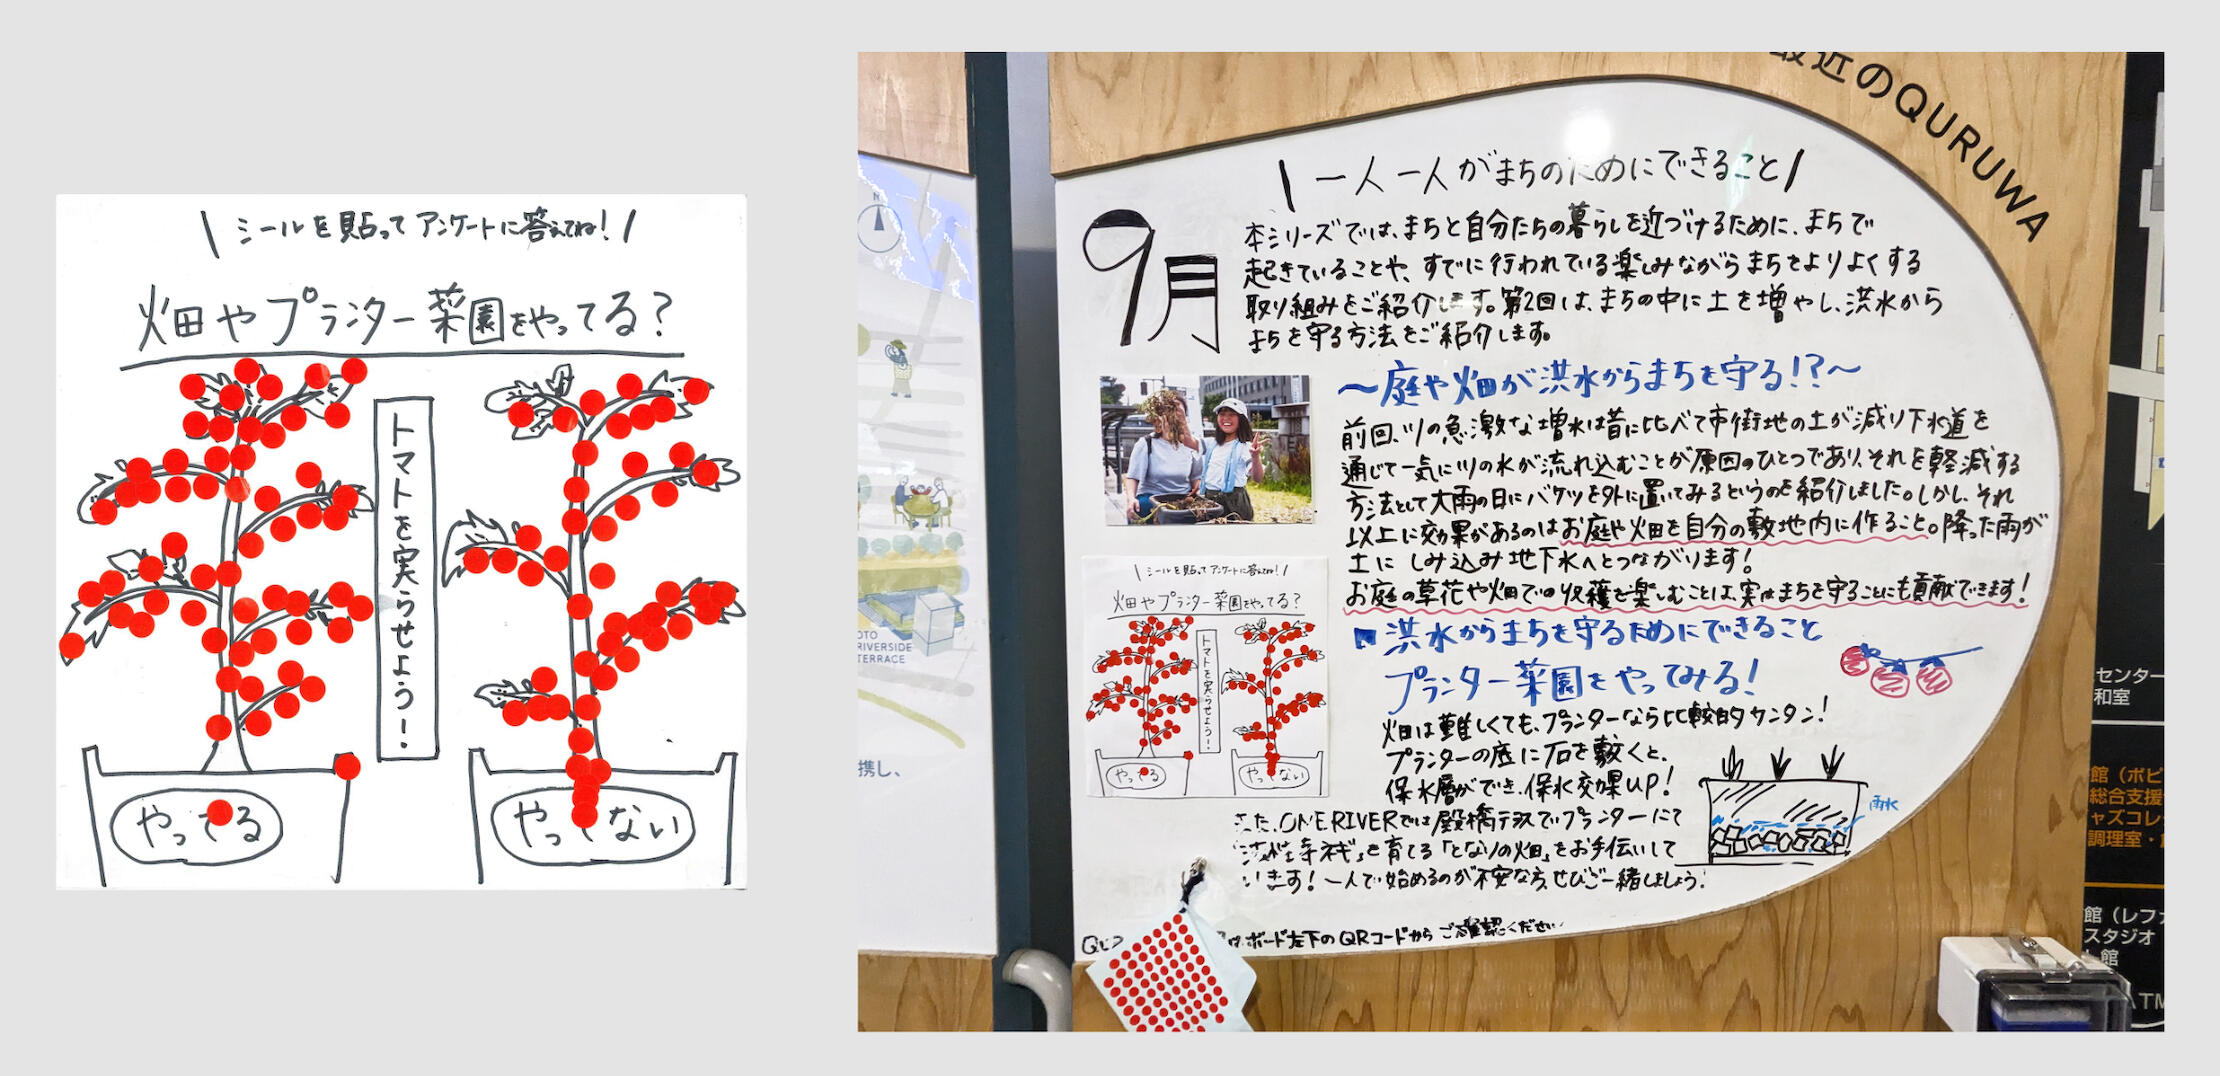 シールを貼ってアンケートに答えてね!
畑やプランター菜園をやってる?
トマトを実らせよう!
やってる
やってない
最近のQURUWA
一人一人がまちのためにできること
9月
本シリーズでは、まちと自分たちの暮らしを近づけるために、まちで
起きていることや、すでに行われている楽しみながらまちをよりよくする
取り組みをご紹介します。第2回は、まちの中に土を増やし、洪水から
まちを守る方法をご紹介します。
〜庭や畑が洪水からまちを守る!?〜
前回、川の急激な増水は昔に比べて市街地の土が減り下水道を
通じて一気に川の水が流れ込むことが原因のひとつであり、それを軽減する
方法として大雨の日にバケツを外に置いてみるというのを紹介しました。しかし、それ
以上に効果があるのはお庭や畑を自分の敷地内に作ること。降った雨が
土にしみ込み地下水へとつながります!
お庭の草花や畑での収穫を楽しむことは、実はまちを守ることにも貢献できます!
シールを貼ってアンケートに答えてね!
畑やプランター菜園をやってる?
トマトを実らせよう!
やってる
やってない
洪水からまちを守るためにできること
プランター菜園をやってみる!
畑は難しくても、プランターなら比較的カンタン!
プランターの底に石を敷くと、
保水層ができ、保水効果UP!
雨水
また、ONE RIVERでは殿橋テラスでプランターにて
「法性寺ネギ」を育てる「となりの畑」をお手伝いして
います!一人で始めるのが不安な方、ぜひご一緒しましょう!
ボード左下のQRコードからご確認ください
N
RIVERSIDE
TERRACE
携し、
センター
和室
館(ポピ
総合支援
ャズコレ
調理室・
館(レファ
スタジオ
館
ATM